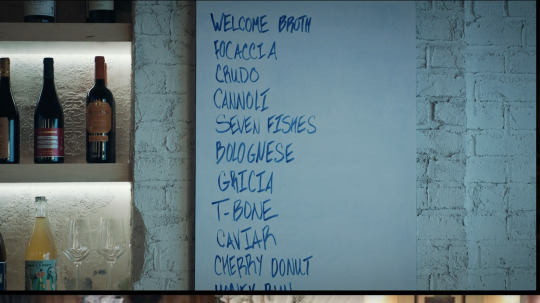 WELCOME BROTH
FOCACCIA
CRUDO
CANNOLI
SEVEN FISHES
BOLOGNESE
GRICIA
T-BONE
CAVIAR
CHERRY DONUT